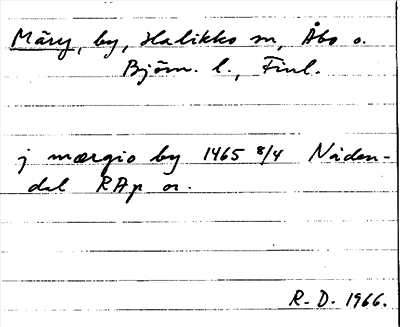 Märy, by, Halikko sn, Åbo o.
Björn. l., Finl.
j mærgio by 1465 8/4 Náden-
dal RAp or.
R. D. 1966.